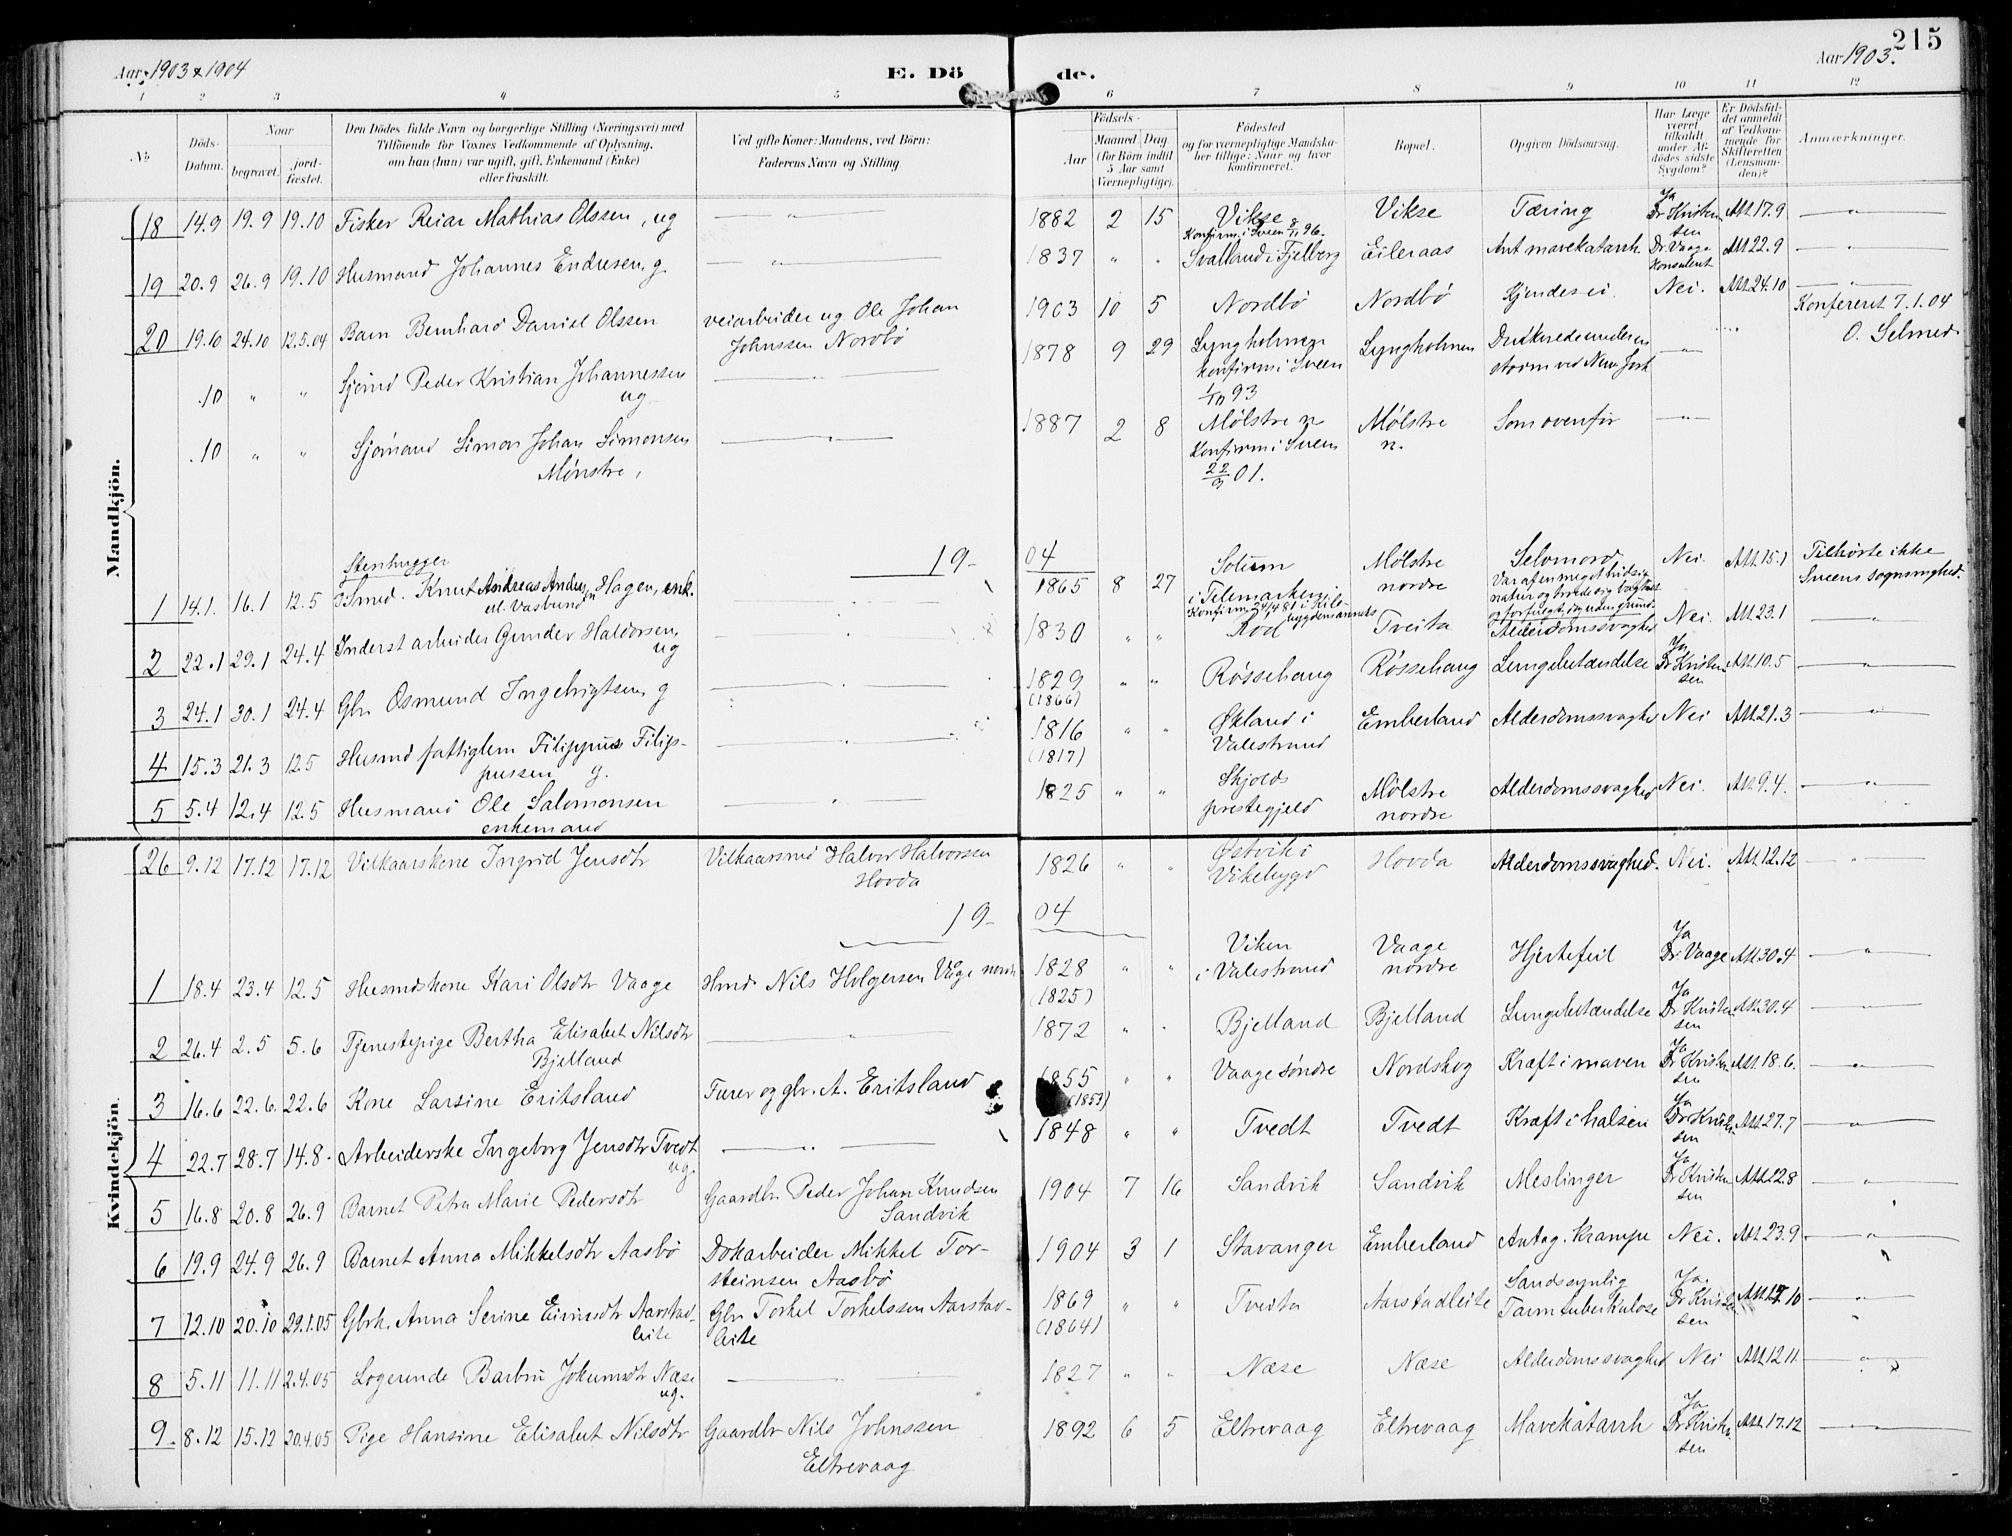 Aar 1903 & 1904
E. Dö
de.
Aar 1903.
215
1 2 3 4 5 6 7 8 9 10 11 12
No
Döds-Datum.
Naar
begravet.
jord-fæstet.
Den Dödes fulde Navn og borgerlige Stilling (Næringsvei) med
Tilföiende for Voxnes Vedkommende af Oplysning,
om han (hun) var ugift, gift, Enkemand (Enke)
eller fraskilt.
Ved gifte Koner: Mandens, ved Börn:
Faderens Navn og Stilling.
Födsels-
Aar
Maaned Dag
(for Börn indtil
5 Aar samt
Værnepligtige).
Födested
og for værnepligtige Mandska-
ber tillige: Naar og hvor
konfirmeret.
Bopæl.
Opgiven Dödsaarsag.
Har Læge
været
tilkaldt
under Af-
dödes sidste
Sygdom?
Er Dödsfal-
det anmeldt
af Vedkom-
mende for
Skifteretten
(Lensman-
den)?
Anmærkninger.
Mandkjön.
18 14.9 19.9 19.10 Fisker Reiar Mathias Olssen, ug — " — 1882 2 15 Vikse Konfirm. i Sveen 8/11 96. Vikse Tæring Ja Dr Kristensen Att. 17.9 — " —
19 20.9 26.9 19.10 Husmand Johannes Endresen, g. — " — 1837 " " Svalland i Fjelberg Eileraas Ant mavekatarrh Dr. Vaage Konsulent Att. 22.9 — " —
20 19.10 24.10 12.5.04 Barn Bernhard Daniel Olssen veiarbeider ug Ole Johan Johnssen Nordbö 1903 10 5 Nordbö Nordbö Kjendes ei Nei. Att. 24.10 — " —
Konfereret 7.1.04
O. Selmer
.10 " " Sjömd Peder Kristian Johannessen ug. — " — 1878 9 29 Lyngholmen konfirm i Sveen 1/10 93 Lyngholmen Druknede under en storm ved New York — " —
.10 " " Sjömand Simon Johan Simonsen Mönstre, — " — 1887 2 8 Mølstre n Konfirm i Sveen 22/9 01. Mølstre n. Som ovenfor — " —
19-04
1 14.1. 16.1 12.5 Stenhugger Smed. Knut Andreas Andersen Hagen, enk. 1865 8 27 Solum i Telemarken Konfirm. 24/4 81 i Kile-bygdens annex Mølstre nordre Selvmord, Var af en meget hidsig natur og troede sig bagtalt og forfulgt, dog uden grund. Nei. Att. 15.1 Tilhørte ikke Sveens sognemenighed.
2 22.1 29.1 24.4 Inderst arbeider Gunder Haldorsen, ug — " — 1830 " " Rod Tveita Alderdomssvaghed Nei. Att. 23.1 — " —
3 24.1 30.1 24.4 Gbr. Osmund Ingebrigtsen, g — " — 1829 (1866) " " Røssehaug Røssehaug Lungebetændelse Ja Dr Kristensen Att. 10.5 — " —
4 15.3 21.3 12.5 Husmd fattiglem Filippus Filip-pussen g. — " — 1816 (1817) " " Økland i Valestrand Emberland Alderdomssvaghed Nei Att. 21.3 — " —
5 5.4 12.4 12.5 Husmand Ole Salomonsen enkemand — " — 1825 " " Skjolds prestegjeld Mølstre nordre Alderdomssvaghed Nei. Att. 9.4. — " —
Kvindekjön.
26 9.12 17.12 17.12 Vilkaarskone Ingrid Jensdtr Vilkaarsmd Halvor Halvorssen Hovda 1826 " " Østvik i Vikebygd Hovda Alderdomssvaghed. Nei. Att. 12.12 — " —
19-04
1 18.4 23.4 12.5 Husmdskone Kari Olsdtr Vaage Hmd Nils Holgersen Våge nordr 1828 (1825) " " Viken i Valestrand Vaage nordre Hjertefeil Ja Dr. Vaage Att 30.4 — " —
2 26.4 2.5 5.6 Tjenestepige Bertha Elisabet Nilsdtr Bjelland — " — 1872 " " Bjelland Bjelland Lungebetændelse Ja Dr Kristensen Att. 30.4 — " —
3 16.6 22.6. 22.6 Kone Larsine Eritsland Furer og gbr. A. Eritsland 1855 (1853) " " Vaage søndre Nordskog Kræft i maven Ja Dr Kristensen Att. 18.6. — " —
4 22.7 28.7 14.8. Arbeiderske Ingeborg Jensdtr Tvedt ug. — " — 1848 " " Tvedt Tvedt Kræft i halsen Ja Dr Kristensen Att. 27.7 — " —
5 16.8 20.8 26.9 Barnet Petra Marie Pedersdtr Gaardbr. Peder Johan Knudsen Sandvik 1904 7 16 Sandvik Sandvik Meslinger Ja Dr Kristensen Att. 22.8 — " —
6 19.9 24.9 26.9 Barnet Anna Mikkelsdtr Aasbö Dokarbeider Mikkel Tor-steinsen Aasbö 1904 3 1 Stavanger Emberland Antag. krampe Nei. Att. 23.9 — " —
7 12.10 20.10 29.1.05 Gbrk. Anna Serine Eirinsdtr Aarstad-leite Gbr Torkel Torkelssen Aarstad-leite 1869 (1864) " " Tveita Aarstadleite Sandsynlig Tarmtuberkulose Ja. Dr Kristensen Att. 17.10 — " —
8 5.11 11.11 2.4.05 Logerende Barbru Jokumsdtr Næse ug. — 1827 " " Næse Næse Alderdomssvaghed Nei Att. 12.11. — " —
9 8.12 15.12 20.4.05 Pige Hansine Elisabet Nilsdtr Gaardbr Nils Johnssen Eltrevaag 1892 6 5 Eltrevaag Eltrevaag Mavekatarrh Ja Dr Kristensen Att. 17.12 — " —